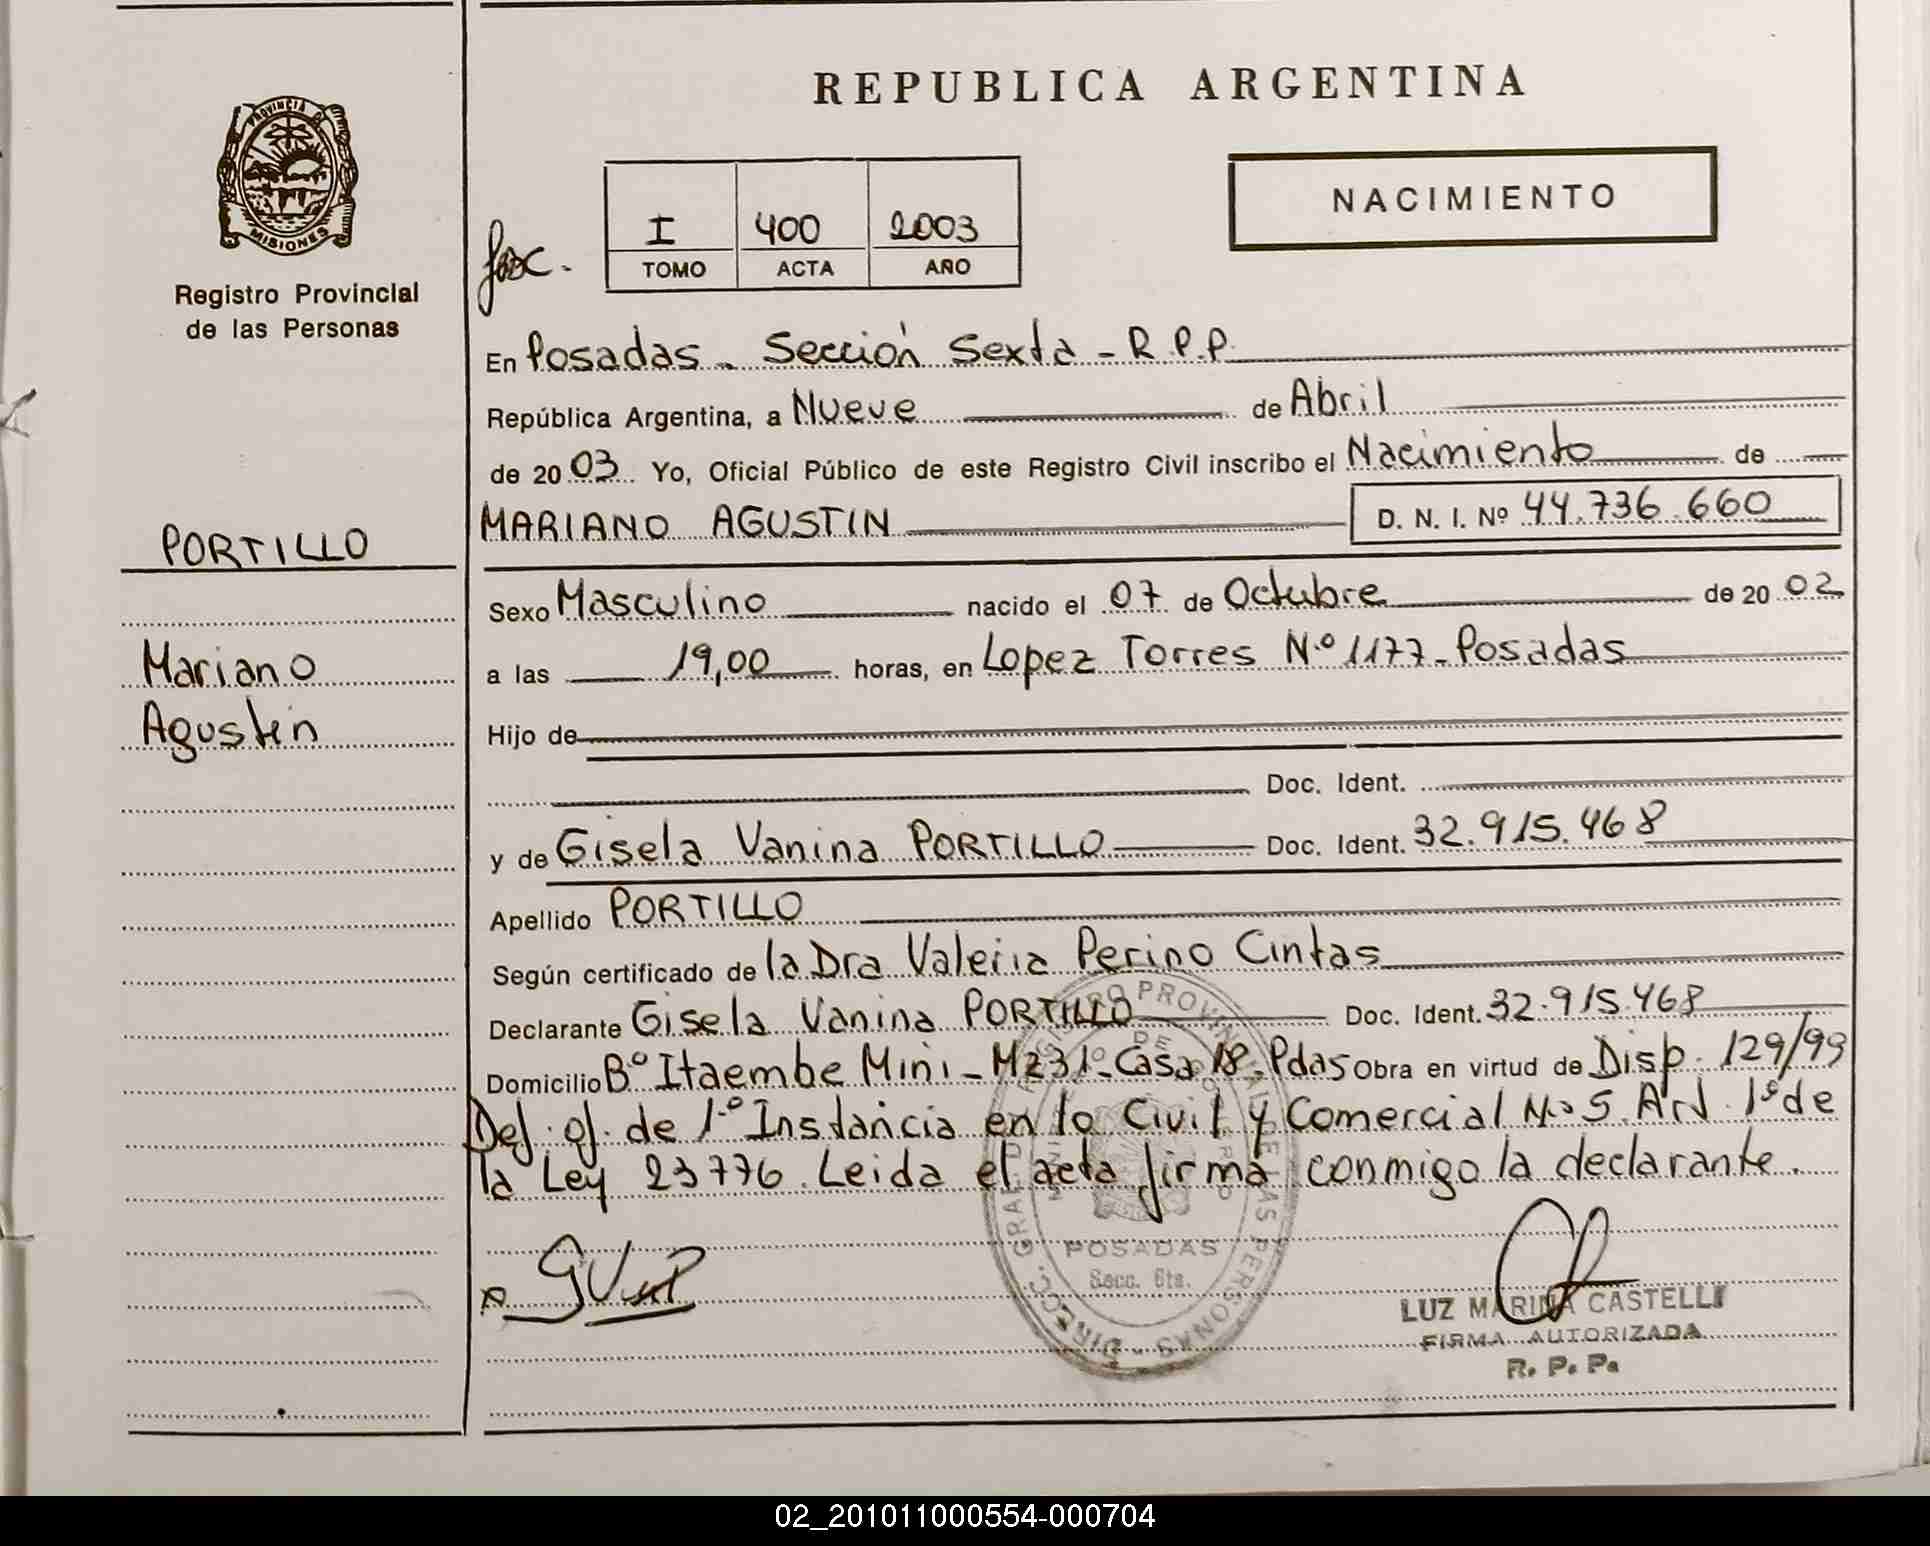 REPUBLICA ARGENTINA
PROVINCIA DE
MISIONES
Registro Provincial
de las Personas
I 400 2003
TOMO ACTA AÑO
NACIMIENTO
En Posadas - Sección Sexta - R.P.P.
República Argentina, a Nueve de Abril
de 2003. Yo, Oficial Público de este Registro Civil inscribo el Nacimiento de
PORTILLO
MARIANO AGUSTIN D. N. I. Nº 44.736.660
Sexo Masculino nacido el 07 de Octubre de 2002
Mariano
Agustin
a las 19,00 horas, en Lopez Torres N.º 1177 - Posadas
Hijo de
Doc. Ident.
y de Gisela Vanina PORTILLO Doc. Ident. 32.915.468
Apellido PORTILLO
Según certificado de la Dra Valeria Perino Cintas
Declarante Gisela Vanina PORTILLO Doc. Ident. 32.915.468
Domicilio Bº Itaembe Mini - Mz31º - Casa 18. Pdas Obra en virtud de Disp. 129/99
Def. of. de 1.º Instancia en lo Civil y Comercial Nº 5. Art. 1º de
la Ley 23776. Leida el acta firma conmigo la declarante.
POSADAS
Secc. 6ta.
LUZ MARINA CASTELLI
FIRMA AUTORIZADA
R. P. P.
02_201011000554-000704